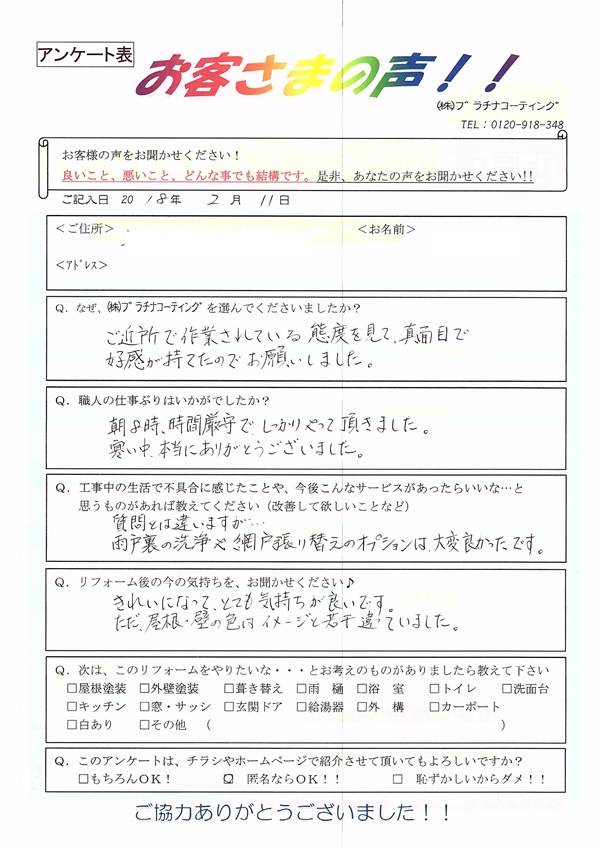 アンケート表
お客さまの声！！
㈱プラチナコーティング
TEL：0120-918-348
お客様の声をお聞かせください！
良いこと、悪いこと、どんな事でも結構です。是非、あなたの声をお聞かせください!!
ご記入日 20 18年 2 月 11日
＜ご住所＞ ＜お名前＞
＜ｱﾄﾞﾚｽ＞
Q．なぜ、㈱プラチナコーティングを選んでくださいましたか？
ご近所で作業されている態度を見て、真面目で
好感が持てたのでお願いしました。
Q．職人の仕事ぶりはいかがでしたか？
朝8時、時間厳守でしっかりやって頂きました。
寒い中、本当にありがとうございました。
Q．工事中の生活で不具合に感じたことや、今後こんなサービスがあったらいいな…と
思うものがあれば教えてください（改善して欲しいことなど）
質問とは違いますが…
雨戸裏の洗浄や網戸張り替えのオプションは、大変良かったです。
Q．リフォーム後の今の気持ちを、お聞かせください♪
きれいになって、とても気持ちが良いです。
ただ、屋根・壁の色はイメージと若干違っていました。
Q．次は、このリフォームをやりたいな・・・とお考えのものがありましたら教えて下さい
□屋根塗装 □外壁塗装 □葺き替え □雨 樋 □浴 室 □トイレ □洗面台
□キッチン □窓・サッシ □玄関ドア □給湯器 □外 構 □カーポート
□白あり □その他 （ ）
Q．このアンケートは、チラシやホームページで紹介させて頂いてもよろしいですか？
□もちろんOK！ □ 匿名ならOK！！ □ 恥ずかしいからダメ！！
ご協力ありがとうございました！！